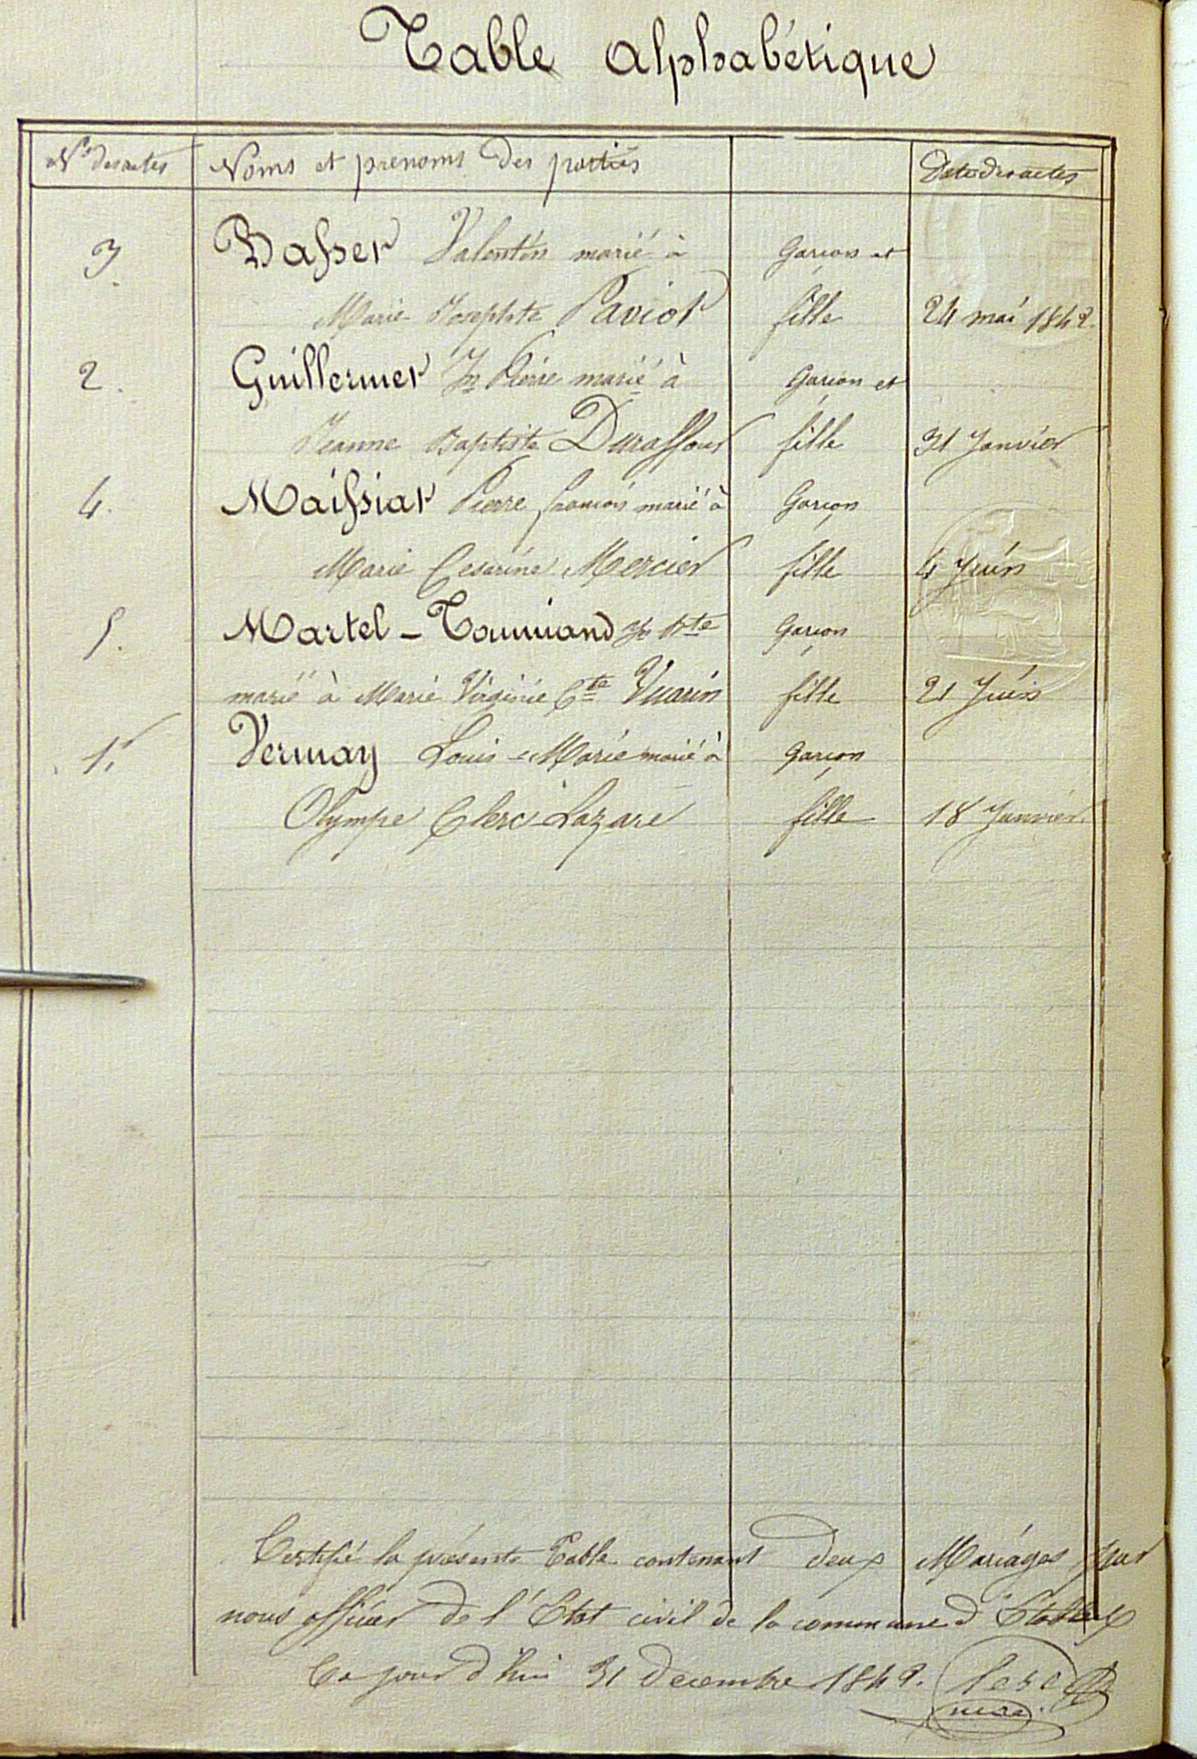 Table alphabétique
Nos des actes Noms et prenoms des parties Dates des actes
3. Basser Valentin marié à Garçon et
Marie Josephte Paviot fille 24 mai 1842.
2. Guillermet Jn Pierre marié à Garçon et
Jeanne Baptiste Duraffour fille 31 Janvier
4. Maissiat Pierre françois marié à Garçon
Marie Cesarine Mercier fille 4 Juin
5. Martel - Tourniand Jn Bte Garçon
marié à Marie Virginie Cte Vuarin fille 21 Juin
1. Vernay Louis - Marie marié à Garçon
Olympe Clerc Lazare fille 18 Janvier
Certifié la présente Table contenant deux Mariages par
nous officier de l'Etat civil de la commune d'Etables
Ce jour d'hui 31 decembre 1842.